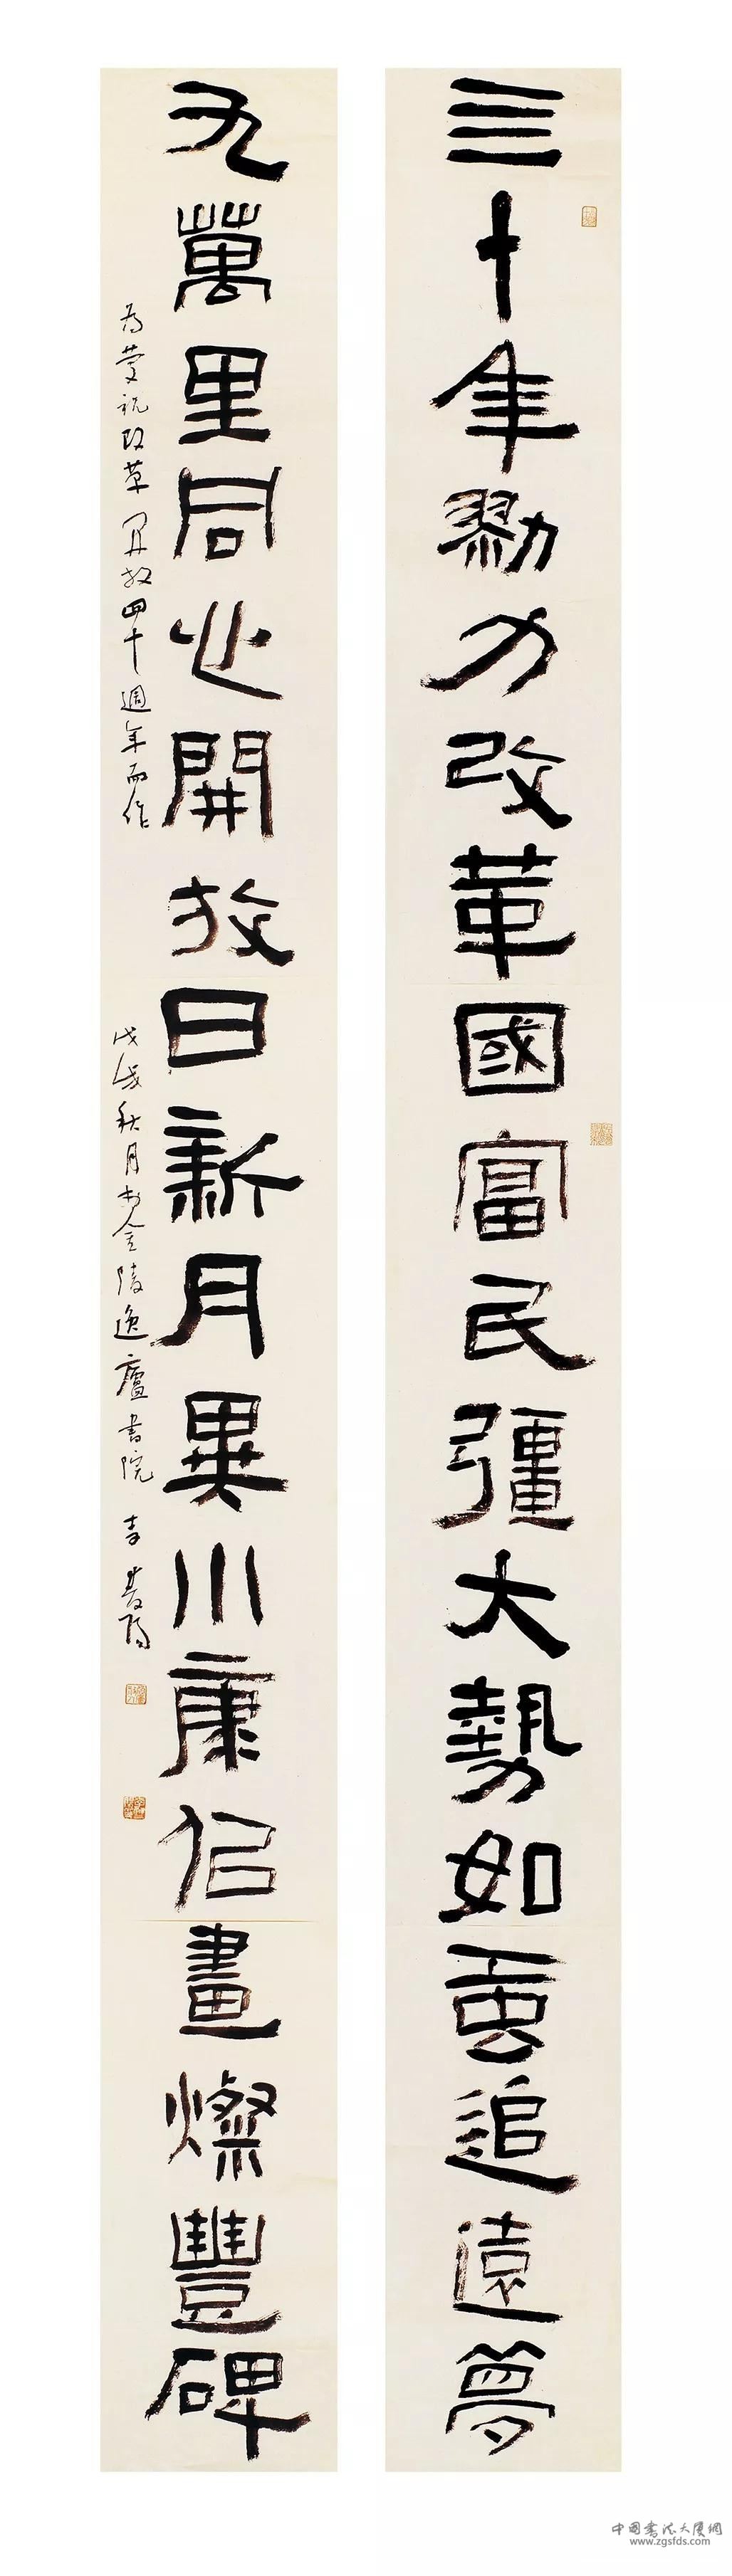 亖十年勠力改革國富民彊大勢如虹追遠夢
九萬里同心開放日新月異小康佀畫燦豐碑
為慶祝改革開放四十週年而作
戊戌秋月於金陵逸廬書院
中國書法大廈網
www.zgsfds.com